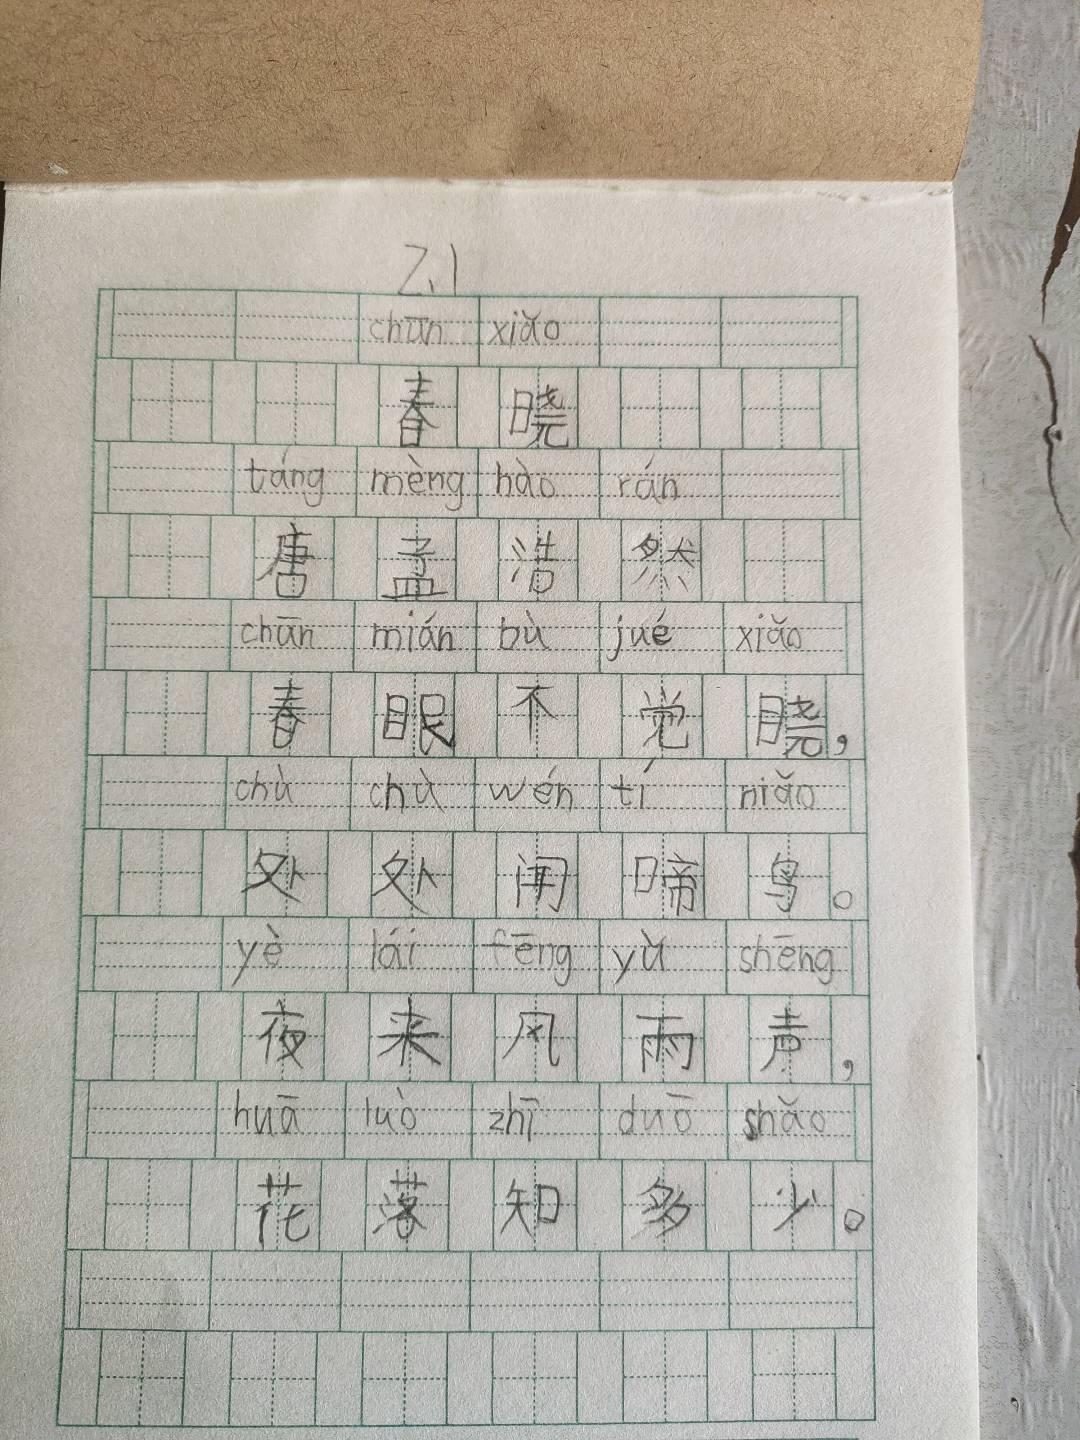 2.1
chūn xiǎo
春晓
táng mèng hào rán
唐孟浩然
chūn mián bù jué xiǎo
春眼不觉晓，
chù chù wén tí niǎo
处处闻啼鸟。
yè lái fēng yǔ shēng
夜来风雨声，
huā luò zhī duō shǎo
花落知多少。